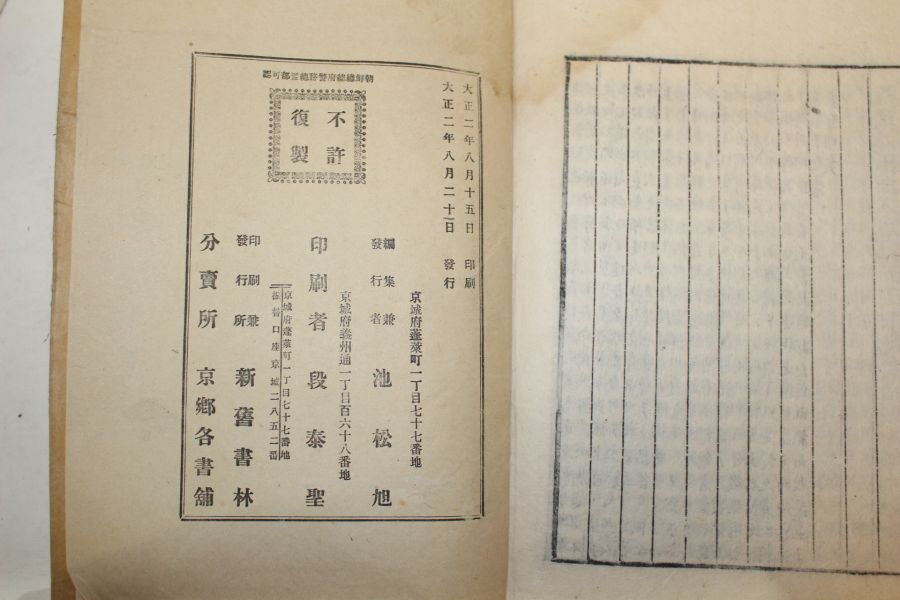 大正二年八月十五日 印刷
大正二年八月二十一日 發行
朝鮮總督府警務總監部可認
不許
復製
京城府蓬萊町一丁目七十七番地
編集兼
發行者 池松旭
京城府義州通一丁目百六十八番地
印刷者 段泰聖
京城府蓬萊町一丁目七十七番地
振替口座京城二八五二番
印刷兼
發行所 新舊書林
分賣所 京鄉各書舖